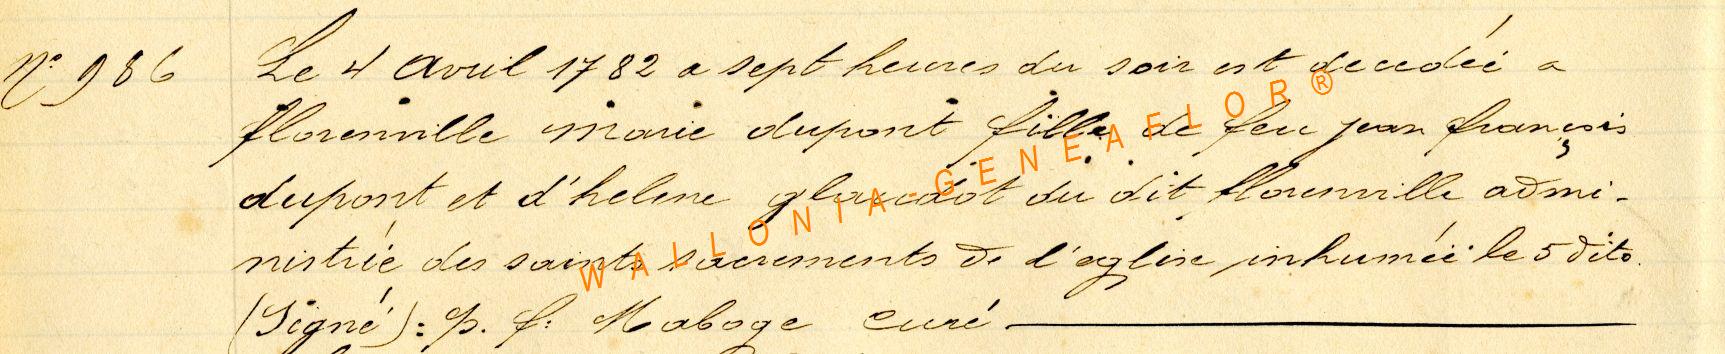 N° 986 Le 4 avril 1782 a sept heures du soir est decedéé a
florenville Marie dupont fille de feu jean françois
dupont et d'helene du dit florenville admi-
nistrée des saints sacrements de l'eglise inhuméé le 5 dito.
(Signé): p. f: Maboge curé
WALLONIA-GENEAFLOR®